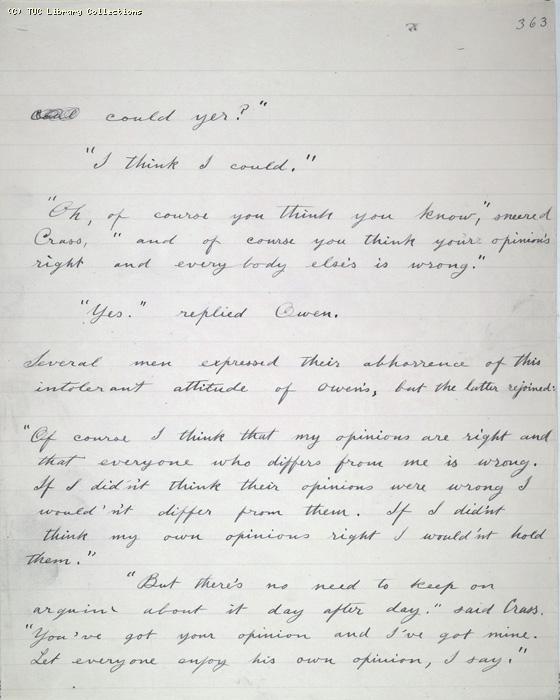 (C) TUC Library Collections
363
could yer?"
"I think I could."
"Oh, of course you think you know," sneered
Crass, "and of course you think your opinion's
right and everybody else's is wrong."
"Yes." replied Owen.
Several men expressed their abhorrence of this
intolerant attitude of Owen's, but the latter rejoined:
"Of course I think that my opinions are right and
that everyone who differs from me is wrong.
If I did'nt think their opinions were wrong I
would'n't differ from them. If I did'nt
think my own opinions right I would'nt hold
them."
"But there's no need to keep on
arguin' about it day after day." said Crass.
"You've got your opinion and I've got mine.
Let everyone enjoy his own opinion, I say."